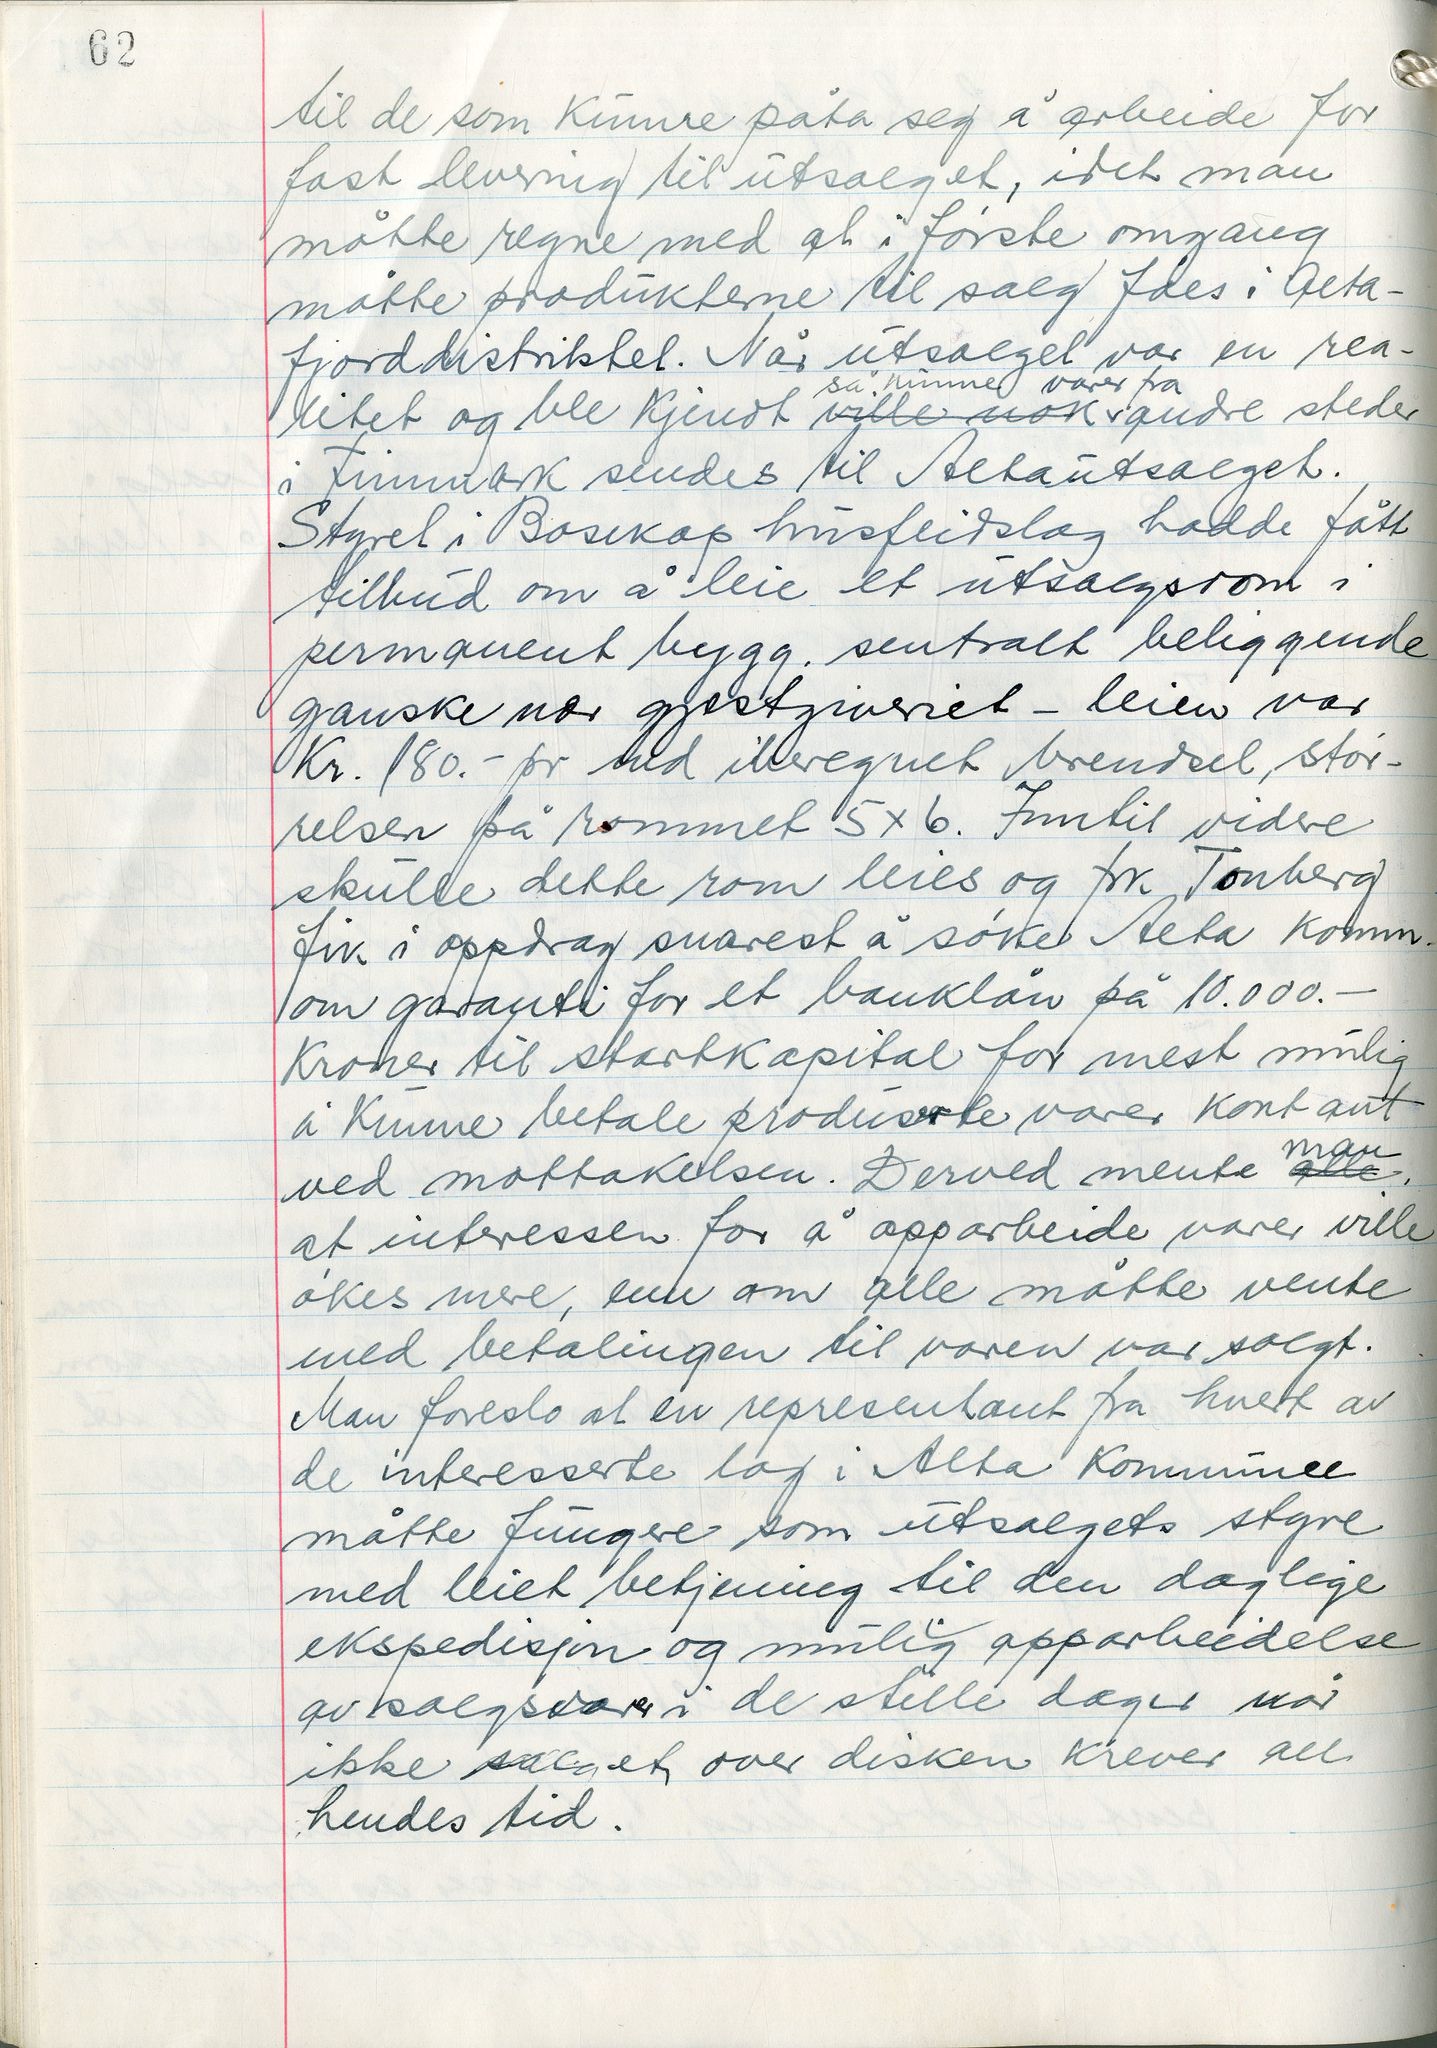 62
til de som kunne påta seg å arbeide for
fast levering til utsalget, idet man
måtte regne med at i første omgang
måtte produkterne til salg fåes i Alta-
fjorddistriktet. Når utsalget var en rea-
så kunne varer fra
litet og ble kjendt ville nok andre steder
i Finnmark sendes til Altautsalget.
Styret i Bosekop husflidslag hadde fått
tilbud om å leie et utsalgsrom i
permanent bygg. sentralt beliggende
ganske nær gjestgiveriet - leien var
Kr. 180.- pr md iberegnet brendsel, stør-
relsen på rommet 5x6. Inntil videre
skulle dette rom leies og frk Tonberg
fik i oppdrag snarest å søke Alta komm.
om garanti for et banklån på 10.000.-
Kroner til startkapital for mest mulig
å kunne betale produserte varer kontant
man
ved mottakelsen. Derved mente alle,
at interessen for å opparbeide varer ville
økes mere, enn om alle måtte vente
med betalingen til varen var solgt.
Man foreslo at en representant fra hvert av
de interesserte lag i Alta Kommune
måtte fungere som utsalgets styre
med leiet betjening til den daglige
ekspedisjon og mulig opparbeidelse
av salgsvarer i de stille dager når
ikke salget over disken krever all
hendes tid.